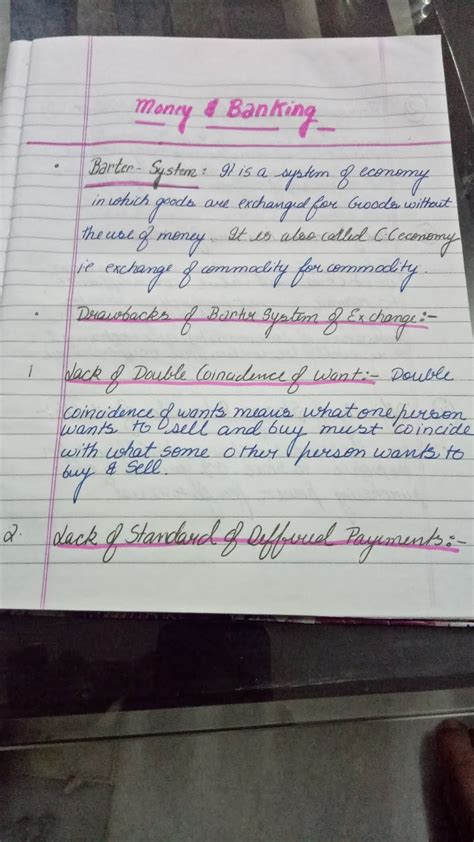 Money & Banking
• Barter-System: It is a system of economy
in which goods are exchanged for Goods without
the use of money. It is also called C.C economy
ie exchange of commodity for commodity.
• Drawbacks of Barter System of Exchange:-
1 Lack of Double Coincidence of Want:- Double
coincidence of wants means what one person
wants to sell and buy must coincide
with what some other person wants to
buy & Sell.
2. Lack of Standard of Deffered Payments:-